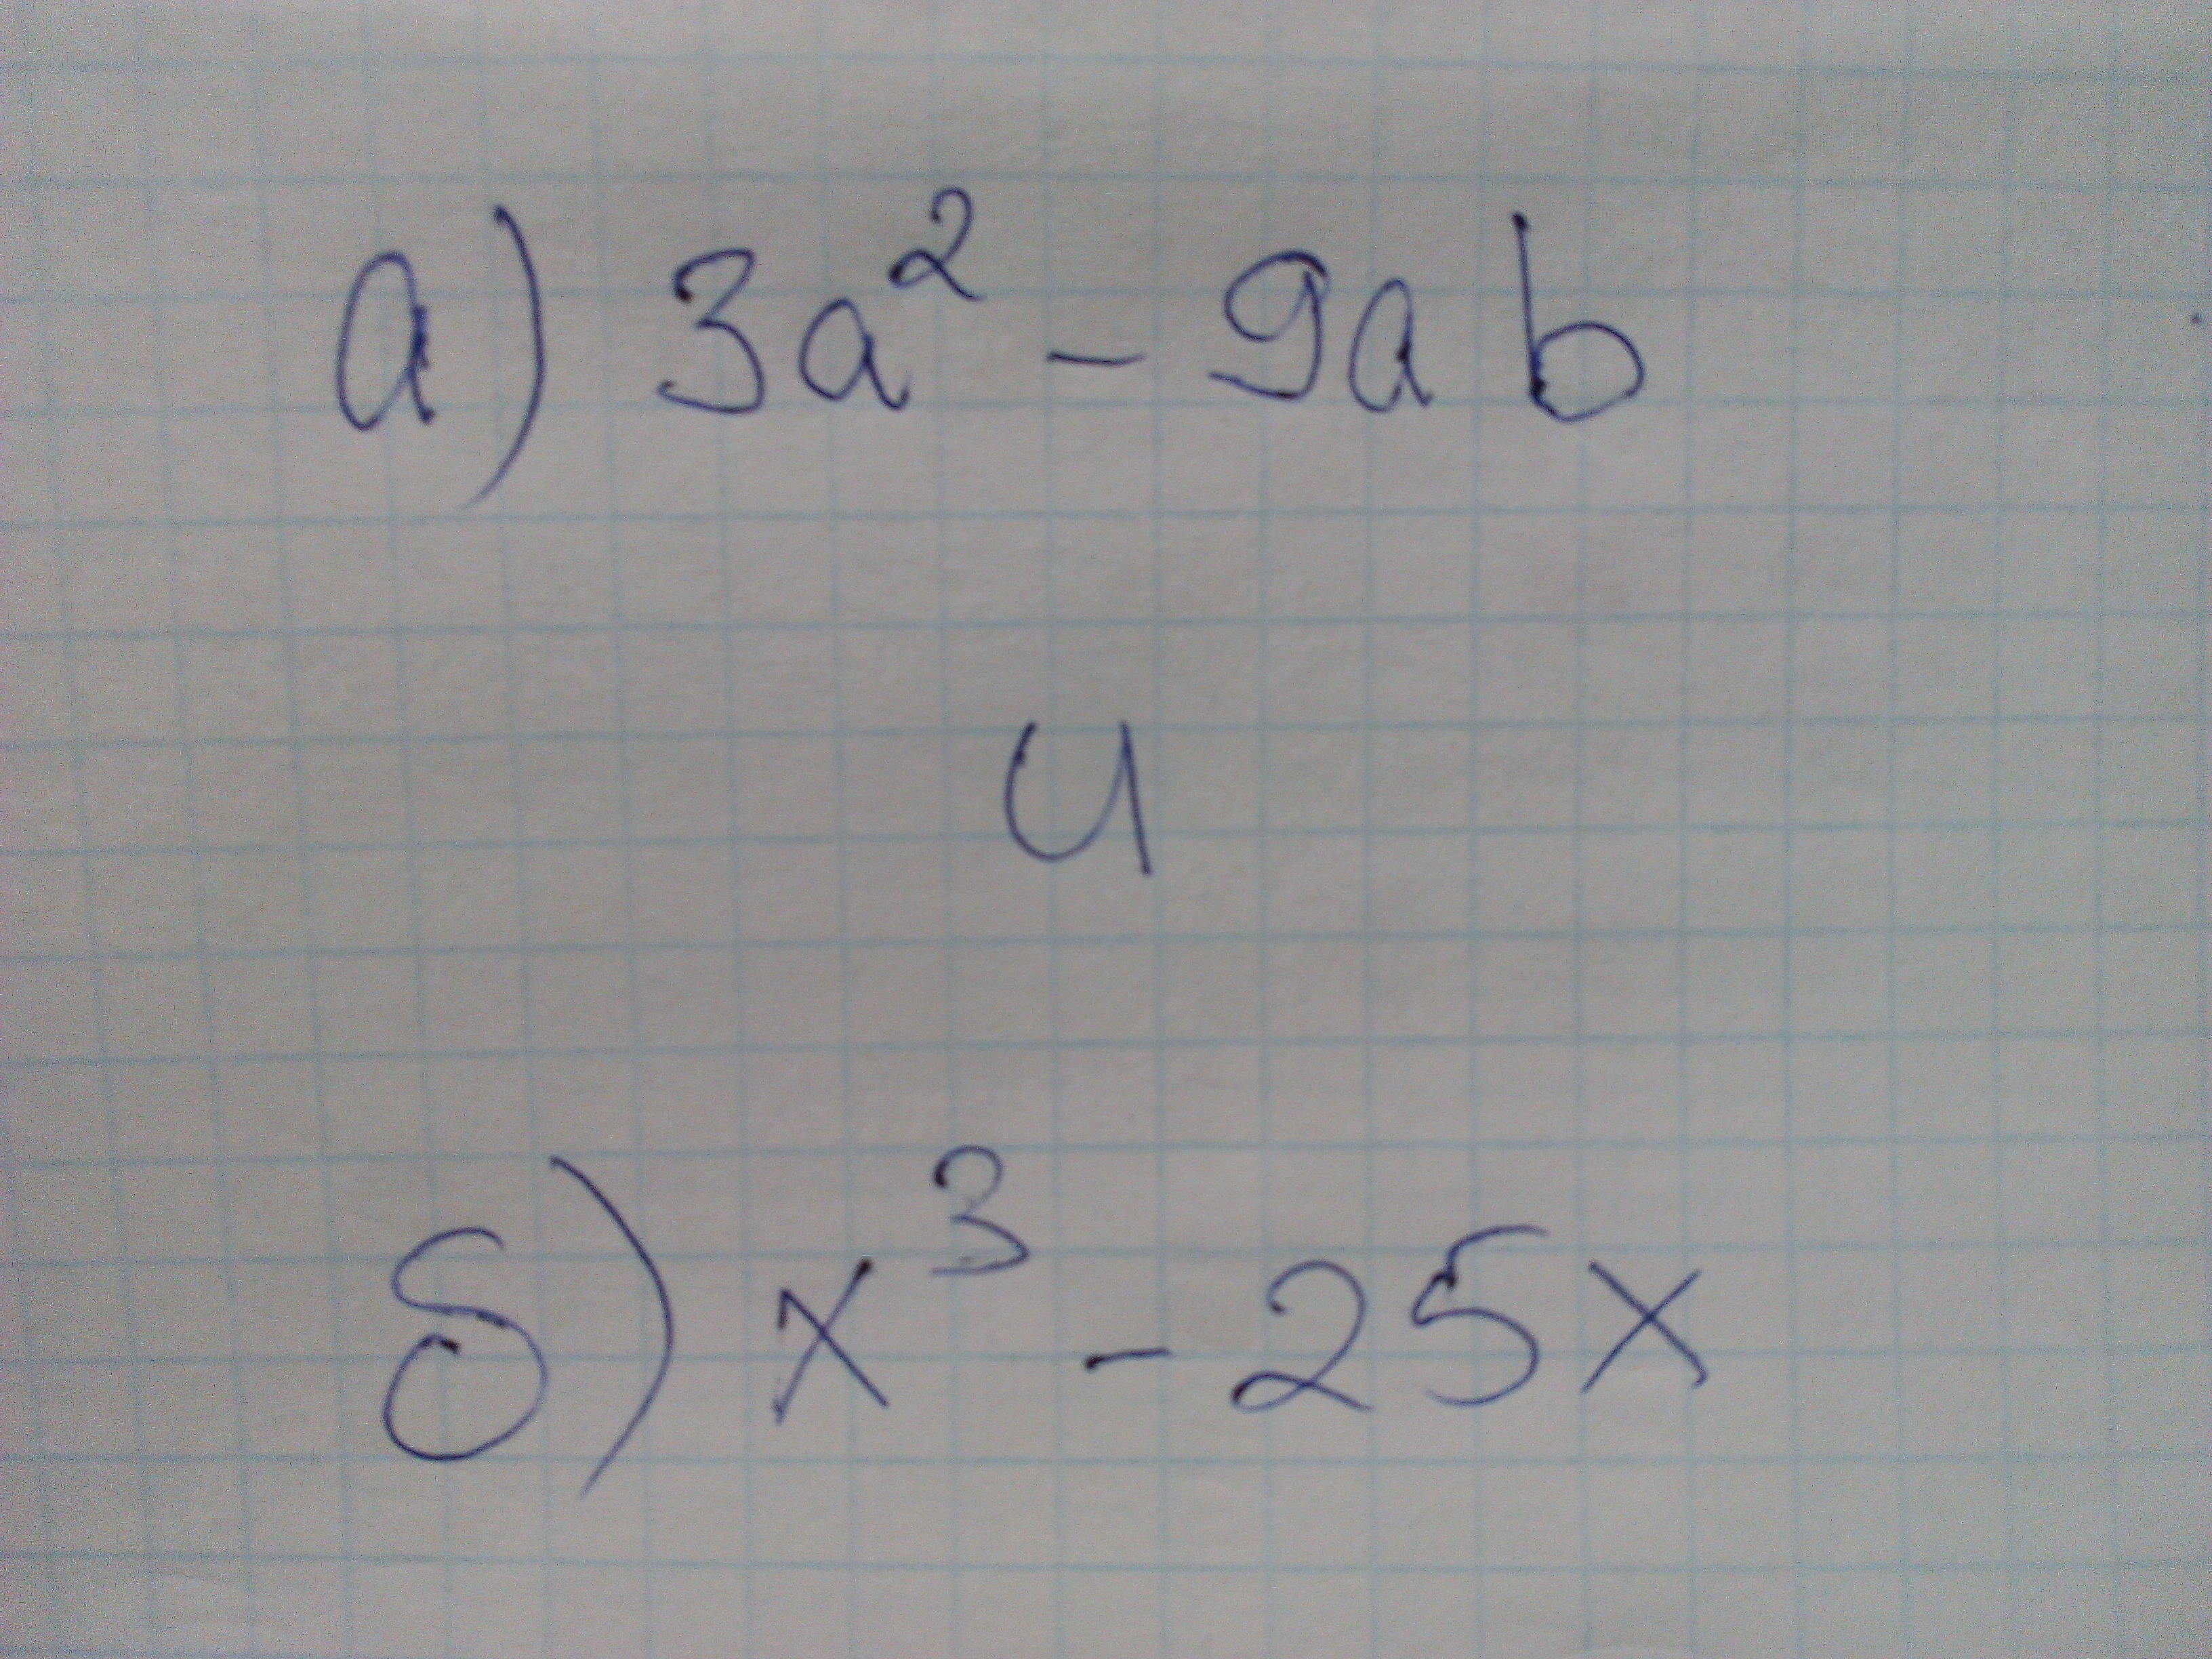 а) 3a² - 9ab
и
б) x³ - 25x